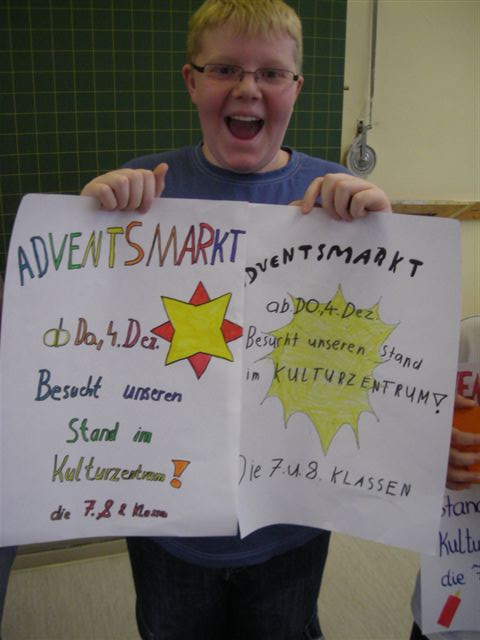 ADVENTSMARKT
ab Do, 4. Dez.
Besucht unseren
Stand im
Kulturzentrum!
die 7. & 8 Klassen
ADVENTSMARKT
ab DO, 4. Dez.
Besucht unseren Stand
im KULTURZENTRUM!
Die 7. u. 8. KLASSEN
Stand
Kultu
die 7